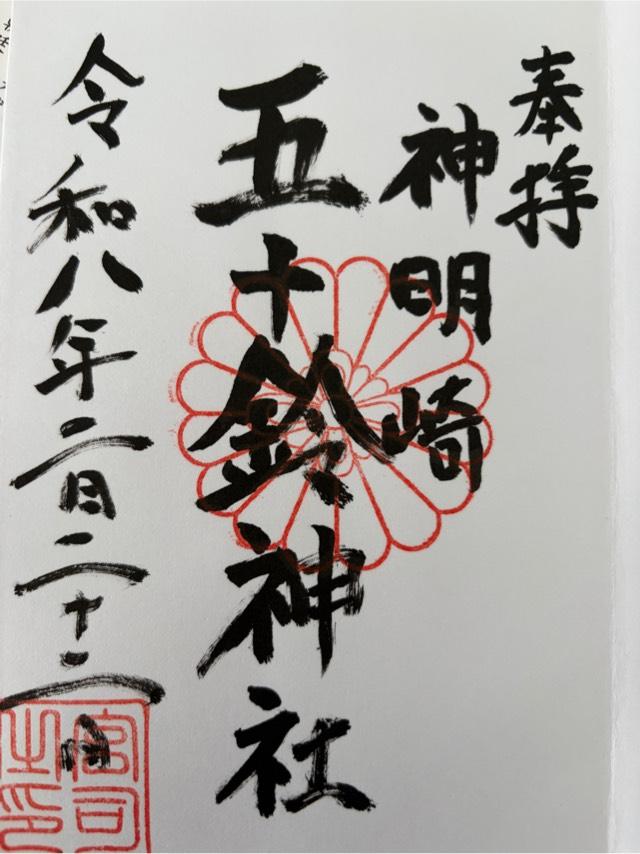 奉拝
神明崎
五十鈴神社
令和八年二月二十二日
宮司之印